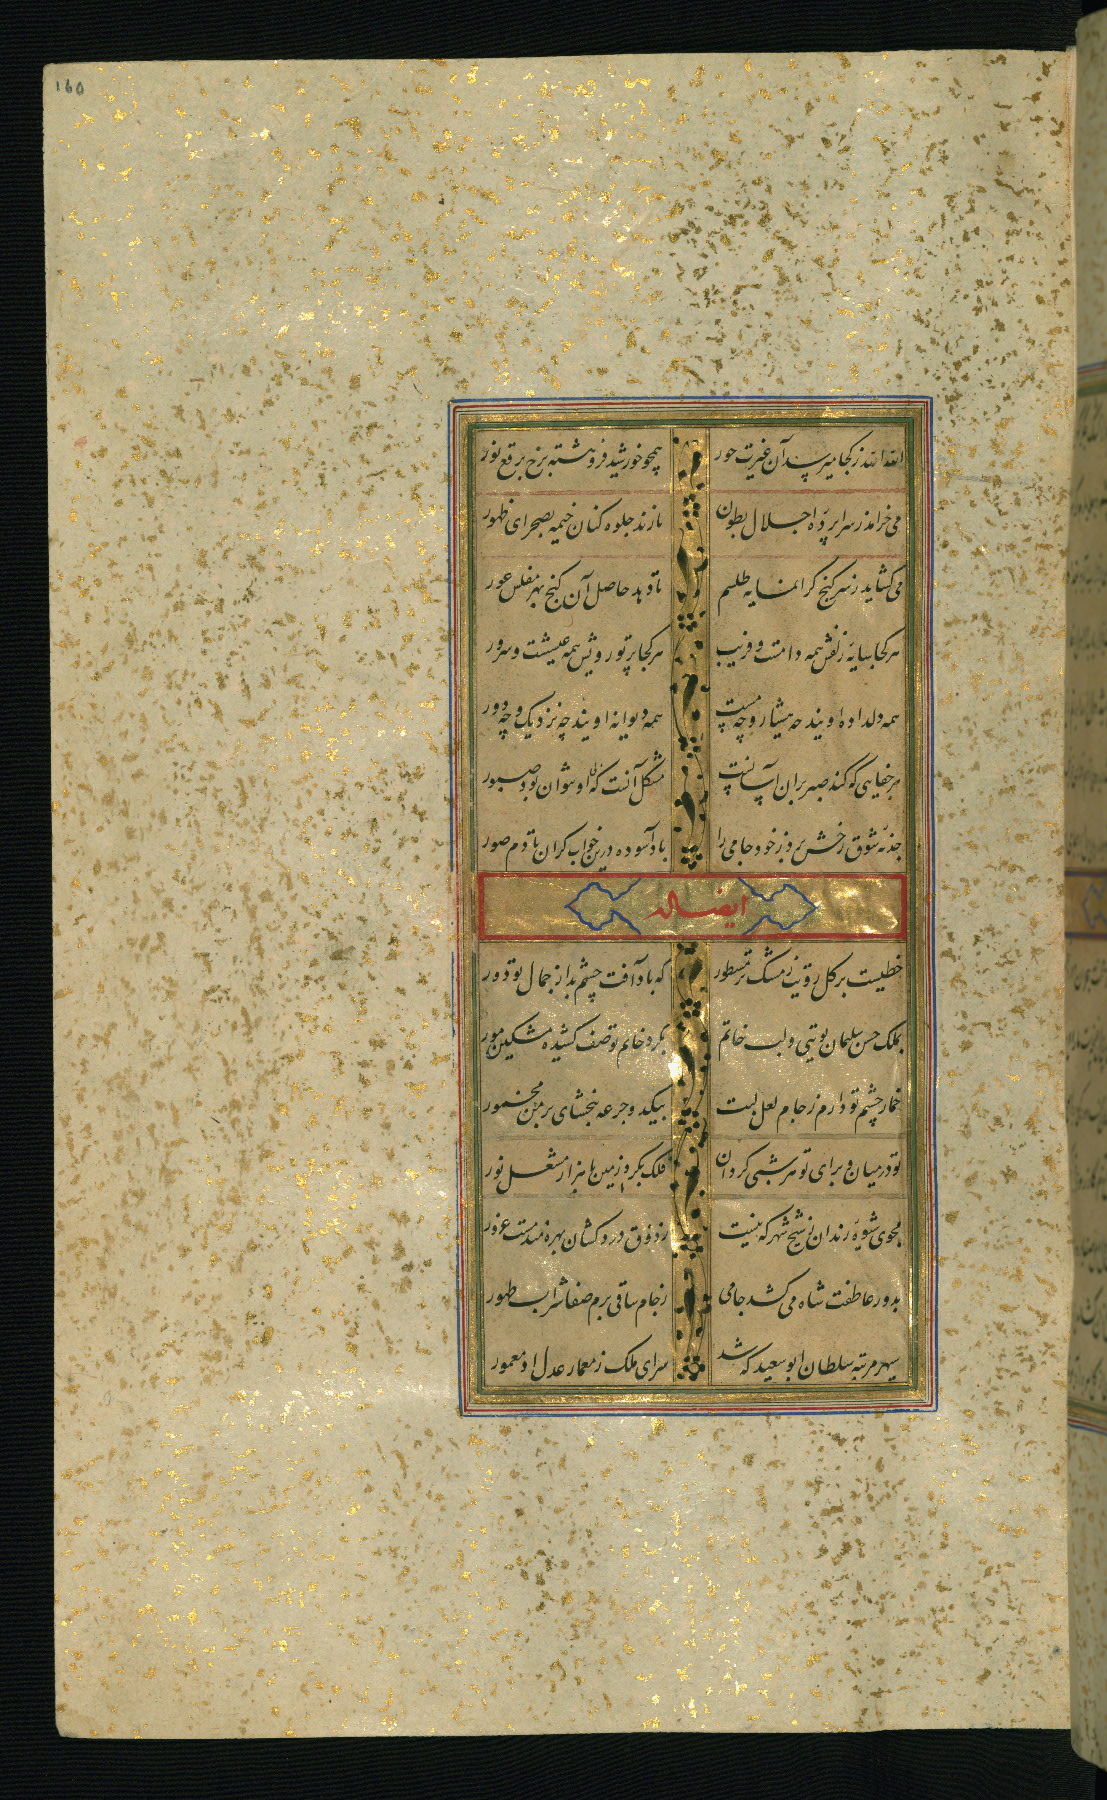 ۱۶۵
الله الله ز کجا میرسد آن غیرت حور همچو خورشید فروهشته برخ برقع نور
می خرامد ز سراپرده اجلال بطون تا زند جلوه کنان خیمه بصحرای ظهور
می کشاید ز سر کنج گرانمایه طلسم تا دهد حاصل آن کنج بهر مفلس عور
هر کجا سایه زلفش همه دامست و فریب هر کجا پرتو رویش همه عیشست و سرور
همه دلداده اویند چه هشیار و چه مست همه دیوانه اویند چه نزدیک و چه دور
هر جفایی که کند صبر بران آسانست مشکل آنست که از او نتوان بود صبور
جذبه شوق رخش برد ز خود جامی را باد آسوده درین خواب کران تا دم صور
ایضاله
خطیست بر کل رویت ز مشک تر مسطور که باد آفت چشم بد از جمال تو دور
بملک حسن سلیمان تویی و لب خاتم بکرد خاتم تو صف کشیده مشکین مور
خمار چشم تو دارم ز جام لعل لبت بیکد و جرعه ببخشای بر من مخمور
تو در میان و برای تو هر شبی کردان فلک بکرد زمین با هزار مشعل نور
مجوی شیوه رندان ز شیخ شهر که نیست ز ذوق درد کشان بهره مند مست غرور
بدور عاطفت شاه می کشد جامی ز جام ساقی بزم صفا شراب طهور
سپهر مرتبه سلطان ابو سعید که شد سرای ملک ز معمار عدل او معمور